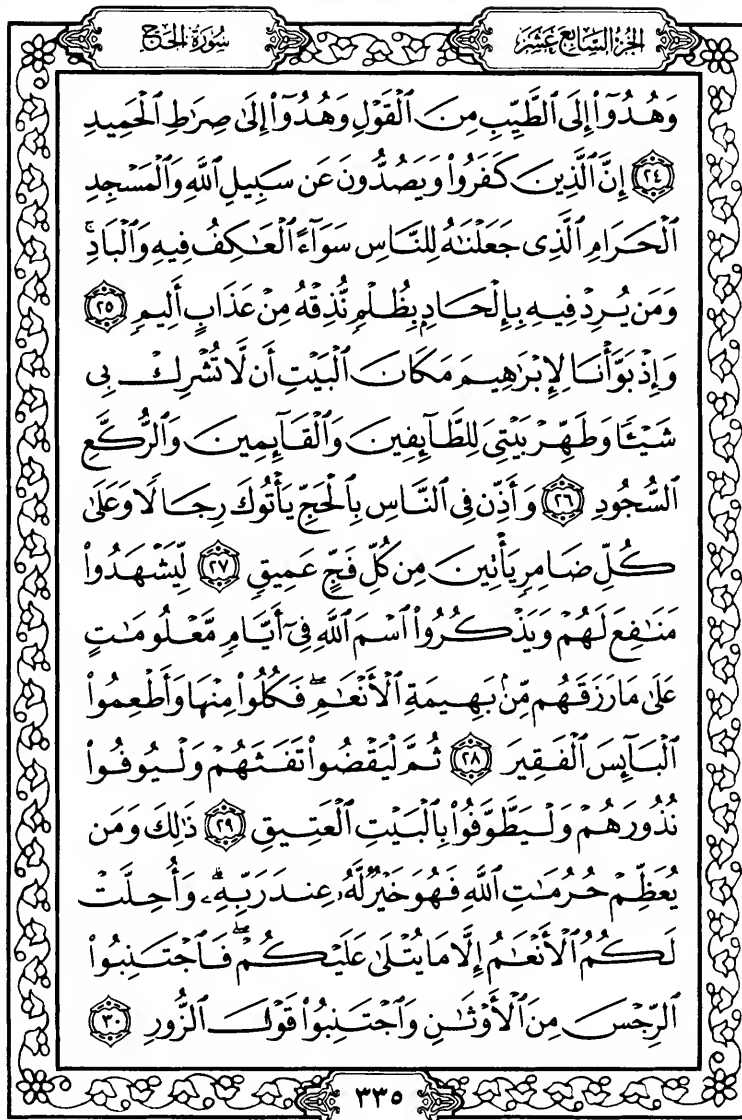 الجزء السابع عشر
سورة الحج
وَهُدُوٓاْ إِلَى ٱلطَّيِّبِ مِنَ ٱلْقَوْلِ وَهُدُوٓاْ إِلَىٰ صِرَٰطِ ٱلْحَمِيدِ
٢٤ إِنَّ ٱلَّذِينَ كَفَرُواْ وَيَصُدُّونَ عَن سَبِيلِ ٱللَّهِ وَٱلْمَسْجِدِ
ٱلْحَرَامِ ٱلَّذِى جَعَلْنَٰهُ لِلنَّاسِ سَوَآءً ٱلْعَٰكِفُ فِيهِ وَٱلْبَادِۚ
وَمَن يُرِدْ فِيهِ بِإِلْحَادٍۭ بِظُلْمٍ نُّذِقْهُ مِنْ عَذَابٍ أَلِيمٍ ٢٥
وَإِذْ بَوَّأْنَا لِإِبْرَٰهِيمَ مَكَانَ ٱلْبَيْتِ أَن لَّا تُشْرِكْ بِى
شَيْـًٔا وَطَهِّرْ بَيْتِىَ لِلطَّآئِفِينَ وَٱلْقَآئِمِينَ وَٱلرُّكَّعِ
ٱلسُّجُودِ ٢٦ وَأَذِّن فِى ٱلنَّاسِ بِٱلْحَجِّ يَأْتُوكَ رِجَالًا وَعَلَىٰ
كُلِّ ضَامِرٍ يَأْتِينَ مِن كُلِّ فَجٍّ عَمِيقٍ ٢٧ لِّيَشْهَدُواْ
مَنَٰفِعَ لَهُمْ وَيَذْكُرُواْ ٱسْمَ ٱللَّهِ فِىٓ أَيَّامٍ مَّعْلُومَٰتٍ
عَلَىٰ مَا رَزَقَهُم مِّنۢ بَهِيمَةِ ٱلْأَنْعَٰمِۖ فَكُلُواْ مِنْهَا وَأَطْعِمُواْ
ٱلْبَآئِسَ ٱلْفَقِيرَ ٢٨ ثُمَّ لْيَقْضُواْ تَفَثَهُمْ وَلْيُوفُواْ
نُذُورَهُمْ وَلْيَطَّوَّفُواْ بِٱلْبَيْتِ ٱلْعَتِيقِ ٢٩ ذَٰلِكَ وَمَن
يُعَظِّمْ حُرُمَٰتِ ٱللَّهِ فَهُوَ خَيْرٌ لَّهُۥ عِندَ رَبِّهِۦۗ وَأُحِلَّتْ
لَكُمُ ٱلْأَنْعَٰمُ إِلَّا مَا يُتْلَىٰ عَلَيْكُمْۖ فَٱجْتَنِبُواْ
ٱلرِّجْسَ مِنَ ٱلْأَوْثَٰنِ وَٱجْتَنِبُواْ قَوْلَ ٱلزُّورِ ٣٠
٣٣٥